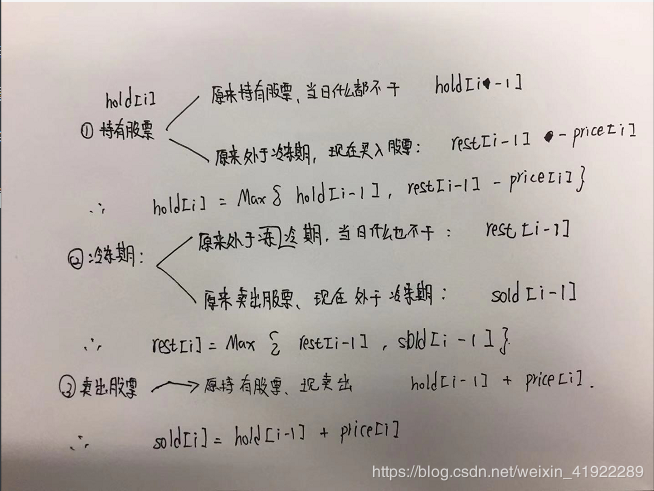 hold[i]
① 持有股票
原来持有股票、当日什么都不干 hold[i-1]
原来处于冷冻期，现在买入股票： rest[i-1] - price[i]
∴ hold[i] = Max { hold[i-1], rest[i-1] - price[i] }
② 冷冻期：
原来处于冻冷期，当日什么也不干： rest[i-1]
原来卖出股票、现在处于冷冻期： sold[i-1]
∴ rest[i] = Max { rest[i-1], sold[i-1] }
③ 卖出股票 → 原持有股票、现卖出 hold[i-1] + price[i].
∴ sold[i] = hold[i-1] + price[i]
https://blog.csdn.net/weixin_41922289